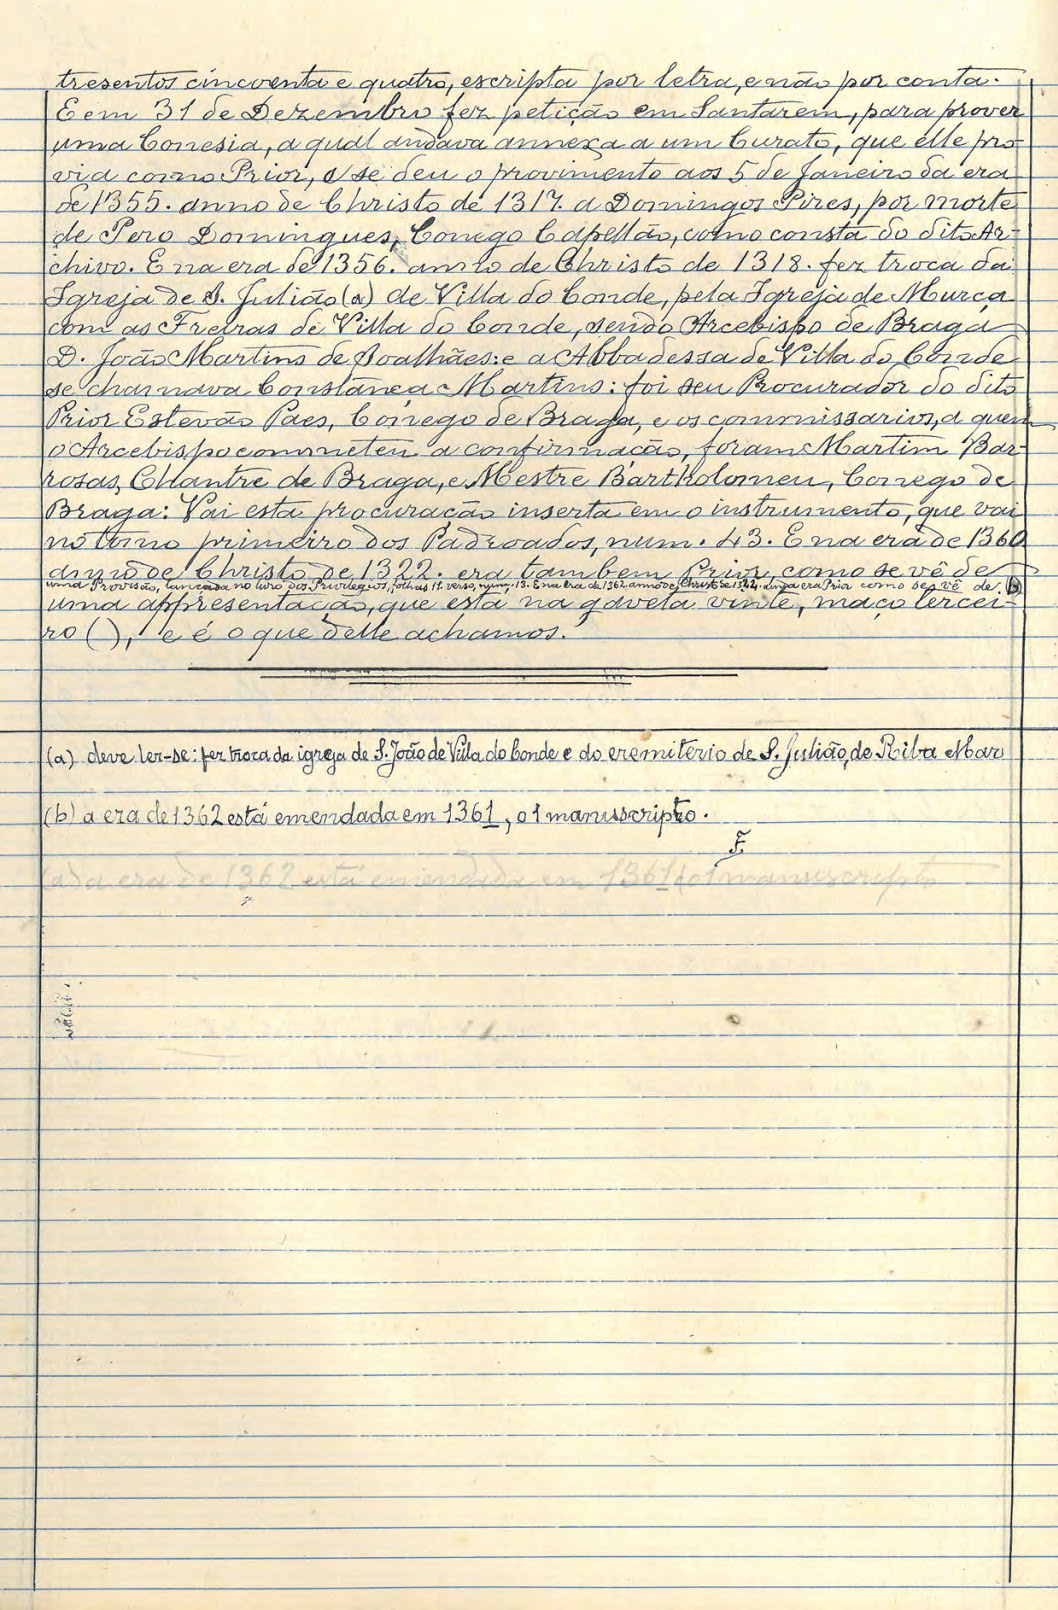 tresentos cincoenta e quatro, escripta por letra, e não por conta.
E em 31 de Dezembro fez petição em Santarem, para prover
uma Conesia, a qual andava annexa a um Curato, que elle pro-
via como Prior, e se deu o provimento aos 5 de Janeiro da era
de 1355. anno de Christo de 1317. a Domingos Pires, por morte
de Pero Domingues, Conego Capellão, como consta do dito Ar-
chivo. E na era de 1356. anno de Christo de 1318. fez troca da
Igreja de S. Julião (a) de Villa do Conde, pela Igreja de Murça
com as Freiras de Villa do Conde, sendo Arcebispo de Braga
D. João Martins de Soalhães: e a Abbadessa de Villa do Conde
se chamava Constança Martins: foi seu Procurador do dito
Prior Estevão Paes, Conego de Braga, e os commissarios, a quem
o Arcebispo cometeu a confirmação, foram Martim Bar-
rosas, Chantre de Braga, e Mestre Bartholomeu, Conego de
Braga: Vai esta procuração inserta em o instrumento, que vai
no tomo primeiro dos Padroados, num. 43. E na era de 1360
anno de Christo de 1322. era tambem Prior, como se vê de
uma Provisão, lançada no livro dos Privilegios, folhas 11. verso, num. 13. E na era de 1362. anno de Christo de 1324. ainda era Prior como se vê de (b)
uma appresentação, que está na gaveta vinte, maço tercei-
ro ( ), e é o que delle achamos.
(a) deve ler-se: fez troca da igreja de S. João de Villa do Conde e do eremiterio de S. Julião, de Riba Mar
(b) a era de 1362 está emendada em 1361, o 1 manuscripto.
F.
(a) a era de 1362 está emendada em 1361 o 1 manuscripto